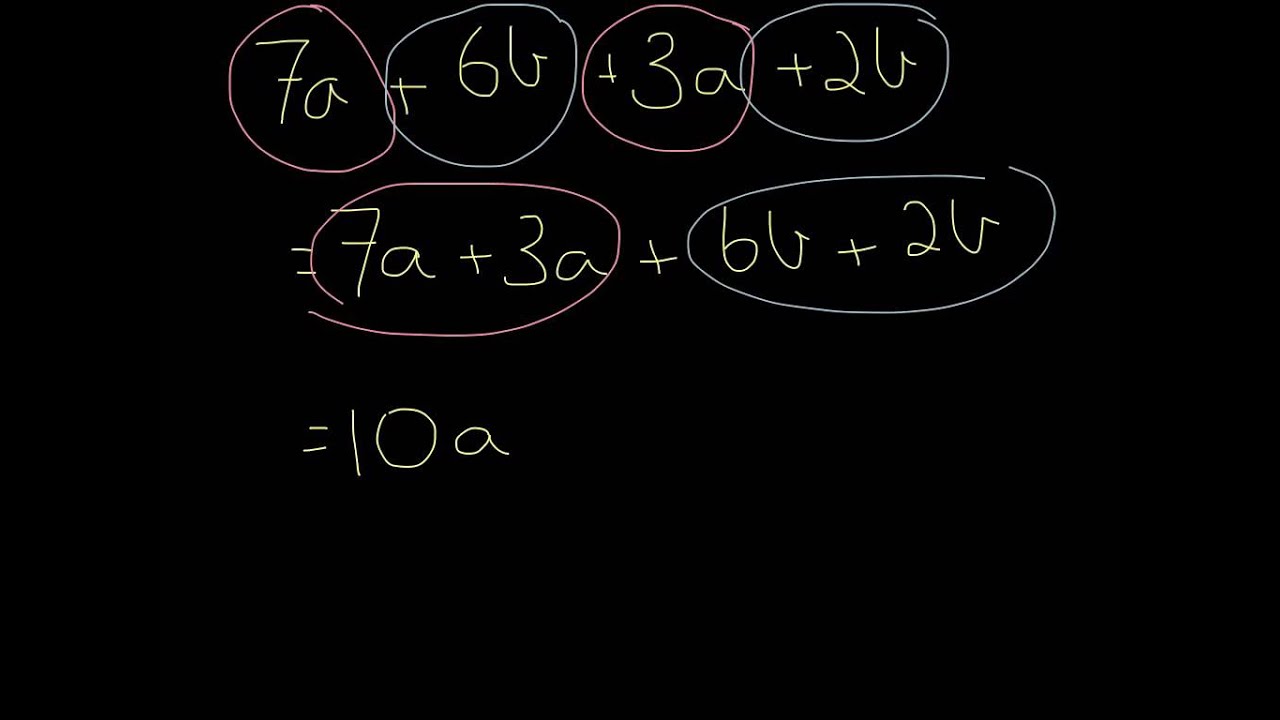 7a + 6b + 3a + 2b
= 7a + 3a + 6b + 2b
= 10a